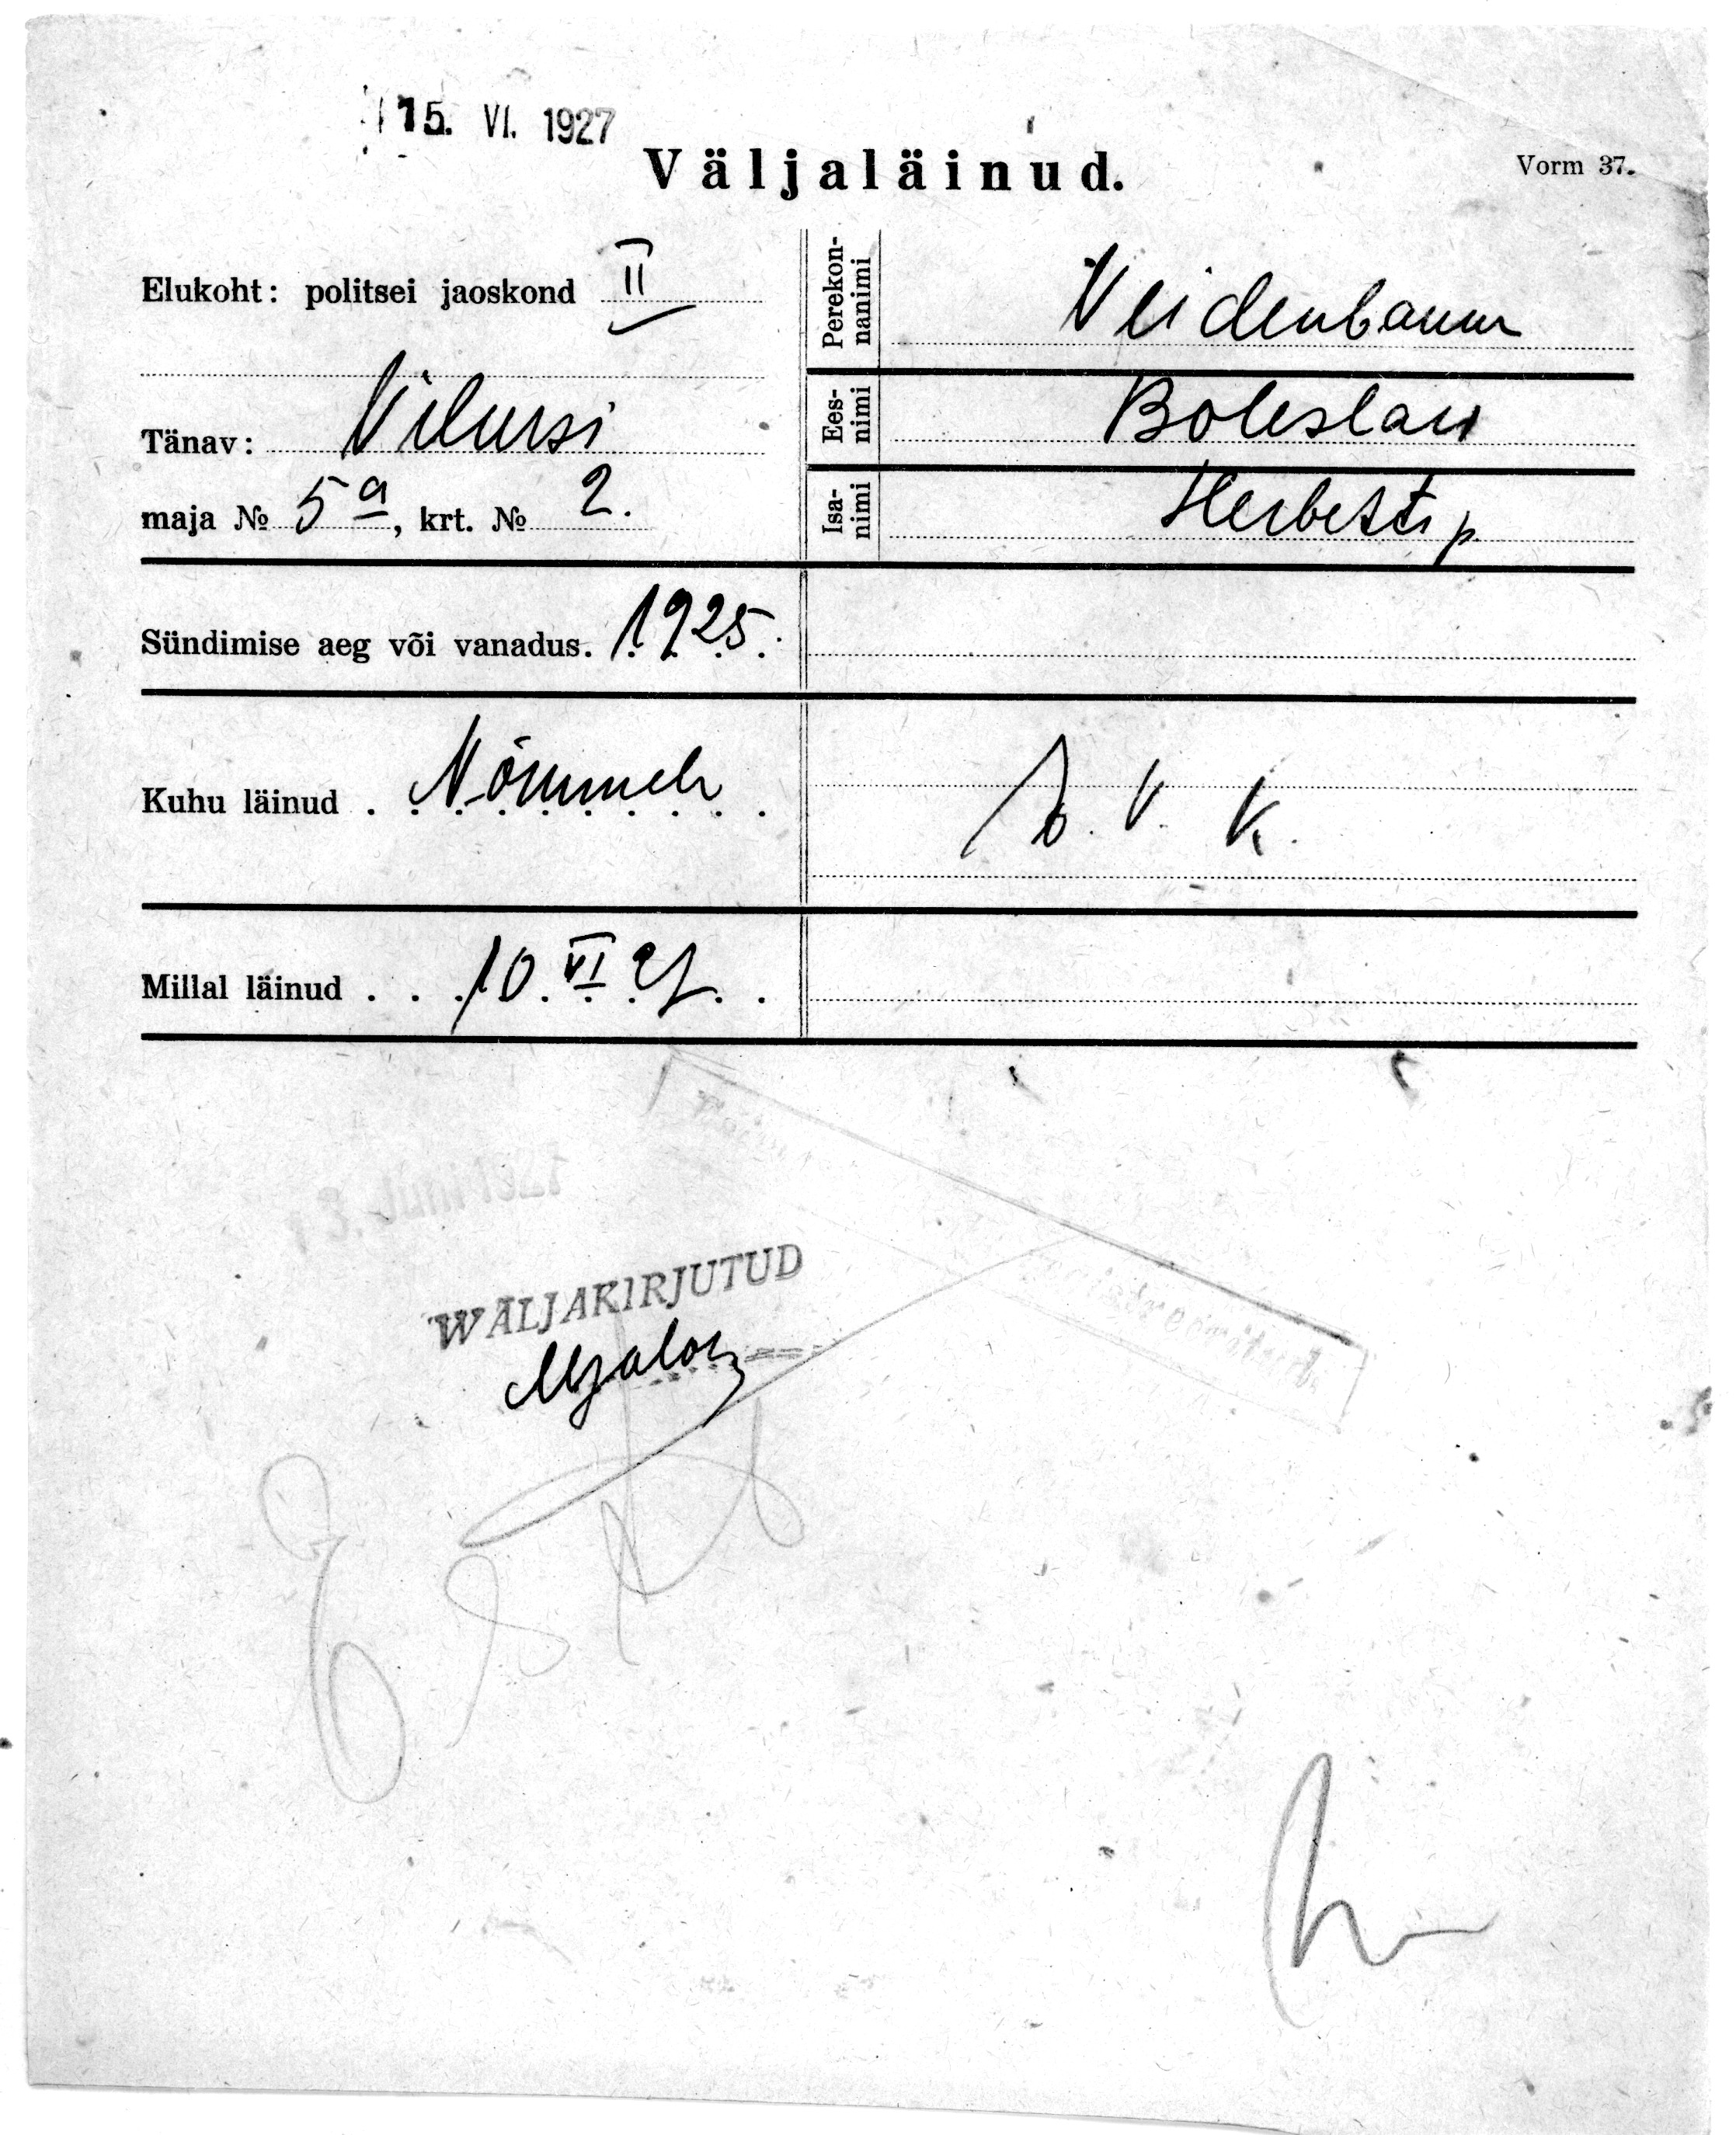 15. VI. 1927
Väljaläinud.
Vorm 37.
Elukoht: politsei jaoskond II
Tänav: Vilmsi
maja № 5a, krt. № 2.
Perekon-
nanimi
Veidenbaum
Ees-
nimi
Boleslau
Isa-
nimi
Herberti p.
Sündimise aeg või vanadus. 1925.
Kuhu läinud . Nõmmele
V. K.
Millal läinud . . 10. VI 27. .
13. Juni 1927
WÄLJAKIRJUTUD